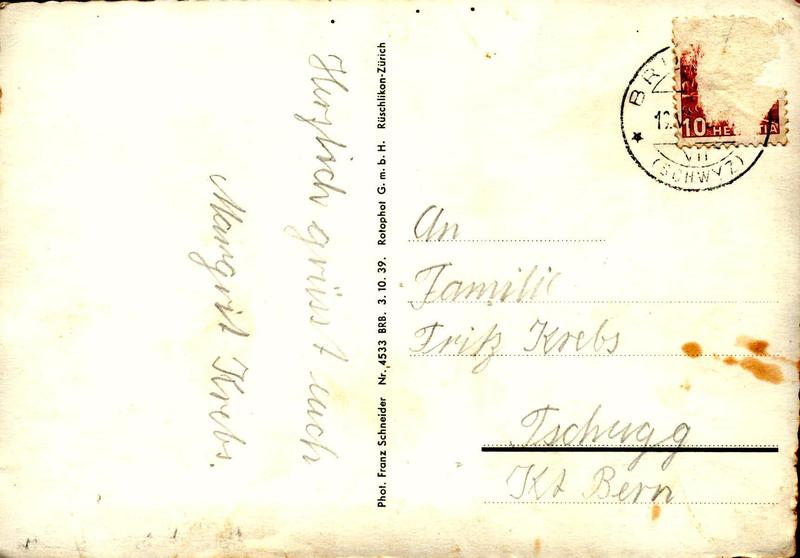 Herzlich grüsst euch
Margrit Krebs.
Phot. Franz Schneider Nr. 4533 BRB. 3. 10. 39. Rotophot G. m. b. H. Rüschlikon-Zürich
(SCHWYZ)
VII
10 HELVETIA
An
Familie
Fritz Krebs
Tschugg
Kt Bern